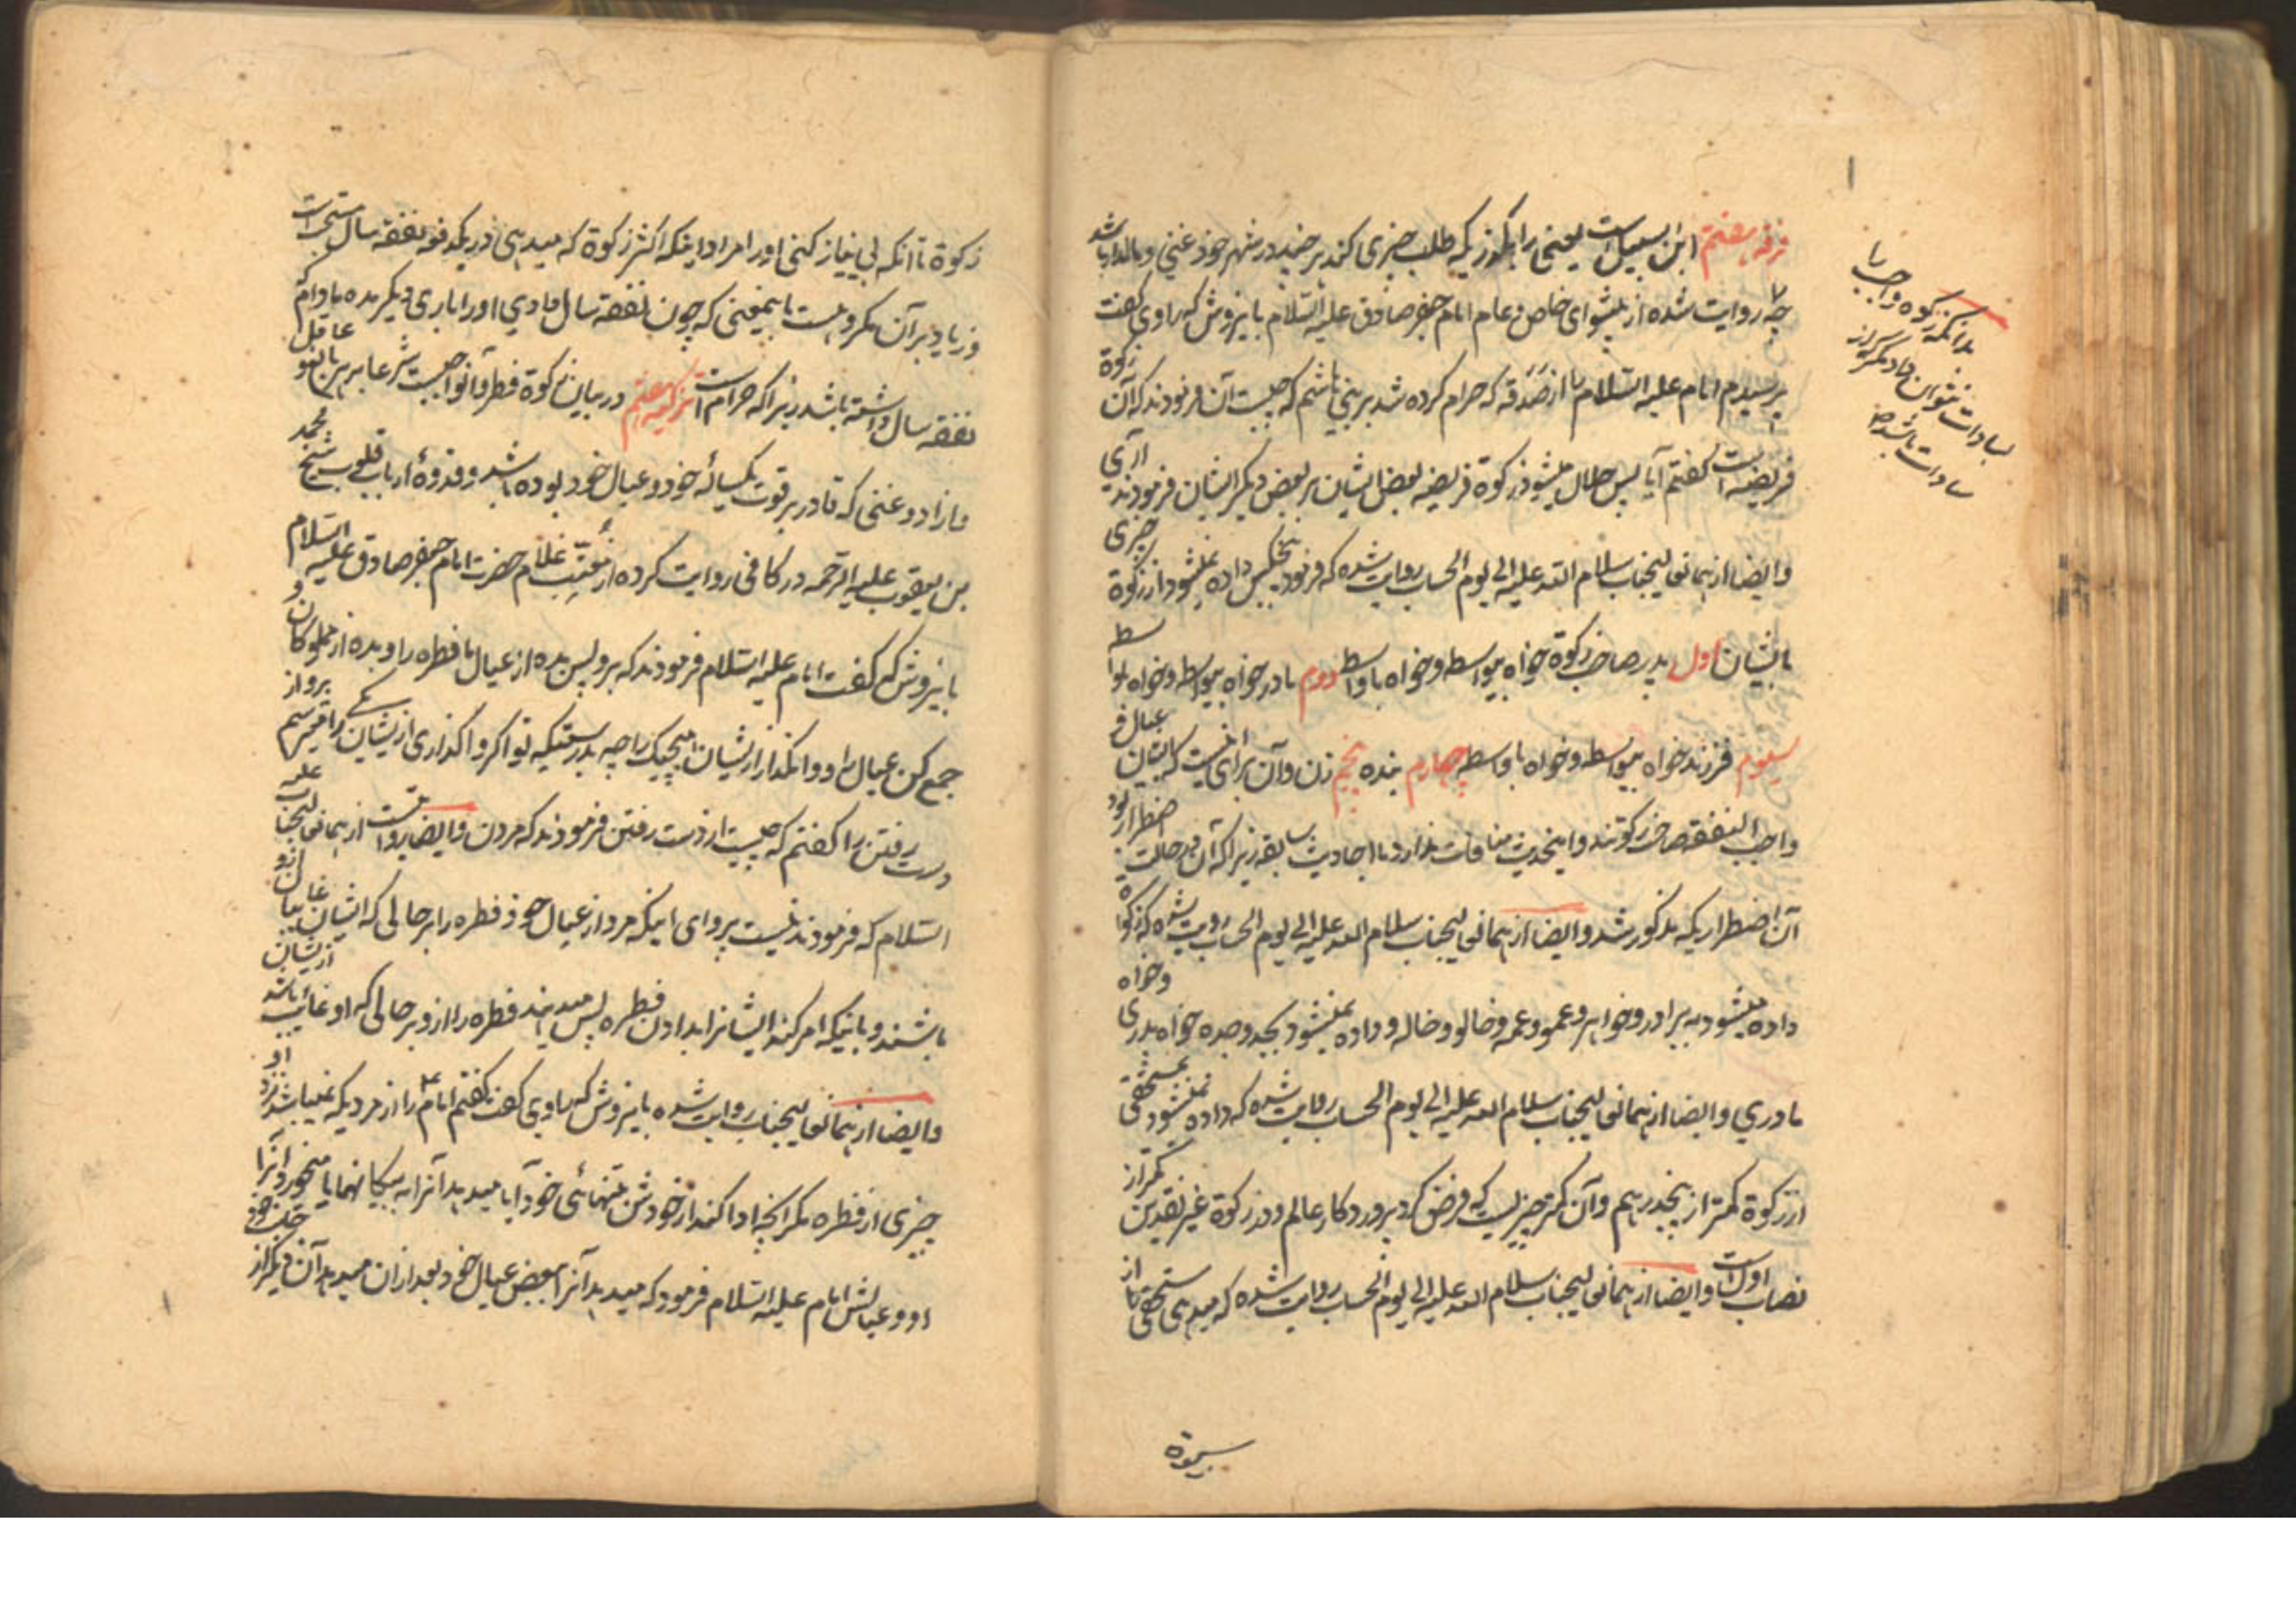 فرقه هشتم ابن السبیل است یعنی راهگذریکه طلب چیزی کند هر چند در شهر خود غنی و مالدار باشد
چه روایت شده از پیشوای خاص و عام امام جعفر صادق علیه السلام باینروش که راوی گفت
پرسیدم امام علیه السلام را از صدقه که حرام کرده شد بر بنی هاشم که چیست آن فرمودند که آن زکوة
فریضه است گفتم آیا پس حلال میشود زکوة فریضه بعض ایشان بر بعض دیگر ایشان فرمودند آری
وایضا از همانعالیجناب سلام الله علیه الی یوم الحساب روایت شده که فرمود پنجکس داده نمیشود از زکوة چیزی
بایشان اول پدر صاحب زکوة خواه بیواسطه و خواه باواسطه دوم مادر خواه بیواسطه و خواه باواسطه
سیوم فرزند خواه بیواسطه و خواه باواسطه چهارم بنده پنجم زن و آن برای اینست که ایشان عیال و
واجب النفقه صاحب زکوتند و اینحدیث منافات ندارد با احادیث سابقه زیرا که آن در حالت اضطرار بود
آن اضطراریکه مذکور شد وایضا از همانعالیجناب سلام الله علیه الی یوم الحساب روایت شده که زکواة
داده میشود به برادر و خواهر و عمو و عمه و خالو و خاله و داده نمیشود بجد و جده خواه پدری و خواه
مادری وایضا از همانعالیجناب سلام الله علیه الی یوم الحساب روایت شده که داده نمیشود بمستحقی
از زکوة کمتر از پنجدرهم و آن کمتر چیزیست که فرض کرد پروردگار عالم و در زکوة غیر نقدین کمتر از
نصاب اول است وایضا از همانعالیجناب سلام الله علیه الی یوم الحساب روایت شده که میدهی مستحقی را از
بدانکه زکوه واجب را
بسادات نتوان داد مگر از
سادات باشد
زکوة تا آنکه بی نیاز کنی او را مراد اینکه اکثر زکوة که میدهی در یکدفعه نفقه سال مستحب است
و زیاد بر آن مکروهست باینمعنی که چون نفقه سال دادی او را باری دیگر مده مادام که
نفقه سال داشته باشد زیرا که حرام است در بیان زکوة فطر و آن واجبست شرعا بر هر بالغ و عاقل
و آزاد و غنی که قادر بر قوت یکساله خود و عیال خود بوده باشد و قدوه ارباب قلوب شیخ محمد
بن یعقوب علیه الرحمه در کافی روایت کرده از معتب غلام حضرت امام جعفر صادق علیه السلام
باینروش که گفت امام علیه السلام فرمودند که برو پس بده از عیال ما فطره را و بده از مملوکان و
جمع کن عیال را و وامگذار از ایشان هیچیک را چه بدرستیکه تو اگر واگذاری از ایشان یکی را میترسم بر او از
درست رفتن را گفتم که چیست از دست رفتن فرمودند که مردن وایضا روایتست از همانعالیجناب علیه
السلام که فرمودند نیست پروای اینکه مرد از عیال خود فطره را بر حالی که ایشان غایبان از او
باشند و باینکه امر کند ایشانرا بدادن فطره پس میدهند فطره را از او بر حالی که او غائب از ایشان باشد
وایضا از همانعالیجناب روایت شده باینروش که راوی گفت گفتم امام را از مردیکه نمیباشد نزد او
چیزی از فطره مگر آنچه ادا کند از خودش بتنهائی خود آیا میدهد آنرا به بیگانها یا میخورد آنرا
او و عیالش امام علیه السلام فرمود که میدهد آنرا ببعض عیال خود و بعد از آن میدهد آن دیگر از